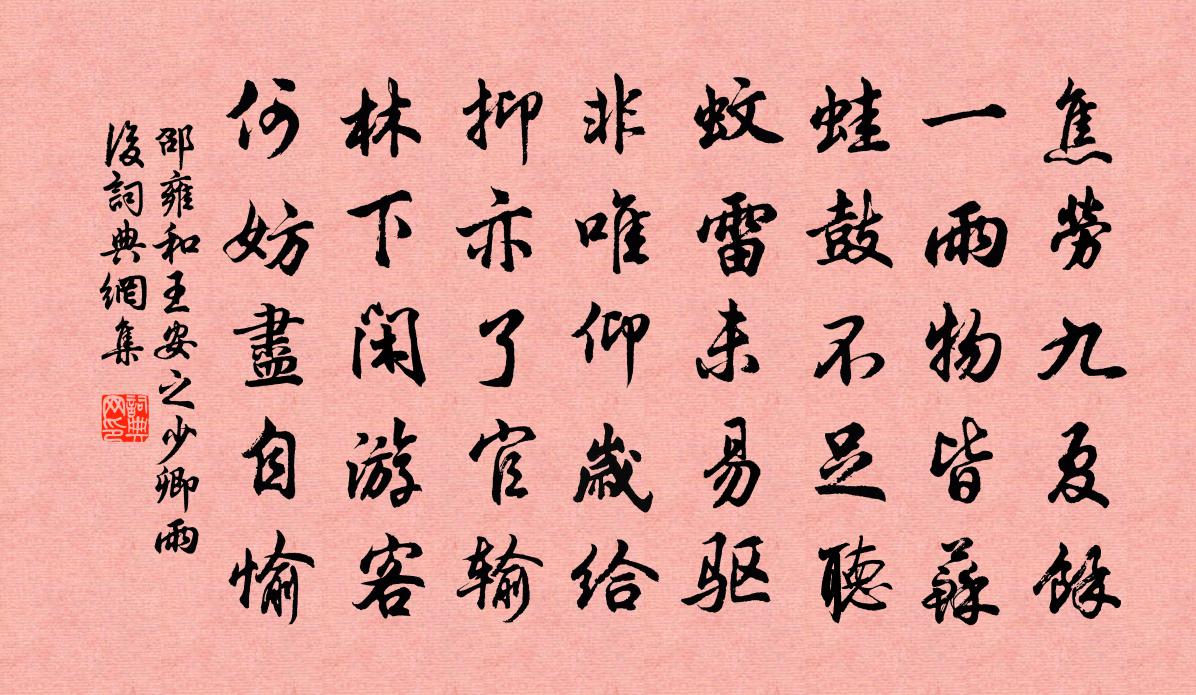 焦勞九夏餘
一雨物皆蘇
蛙鼓不足聽
蚊雷未易驱
非唯仰歲给
抑亦了官输
林下閑游客
何妨盡自愉
邵雍和王安之少卿雨
後詞典網集
詞典网印